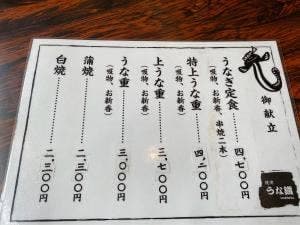 御献立
うなぎ定食………四、七〇〇円
(吸物、お新香、串焼二本)
特上うな重………四、二〇〇円
(吸物、お新香)
上うな重………三、七〇〇円
(吸物、お新香)
うな重………三、〇〇〇円
(吸物、お新香)
蒲焼………二、三〇〇円
白焼………二、三〇〇円
うな鐵